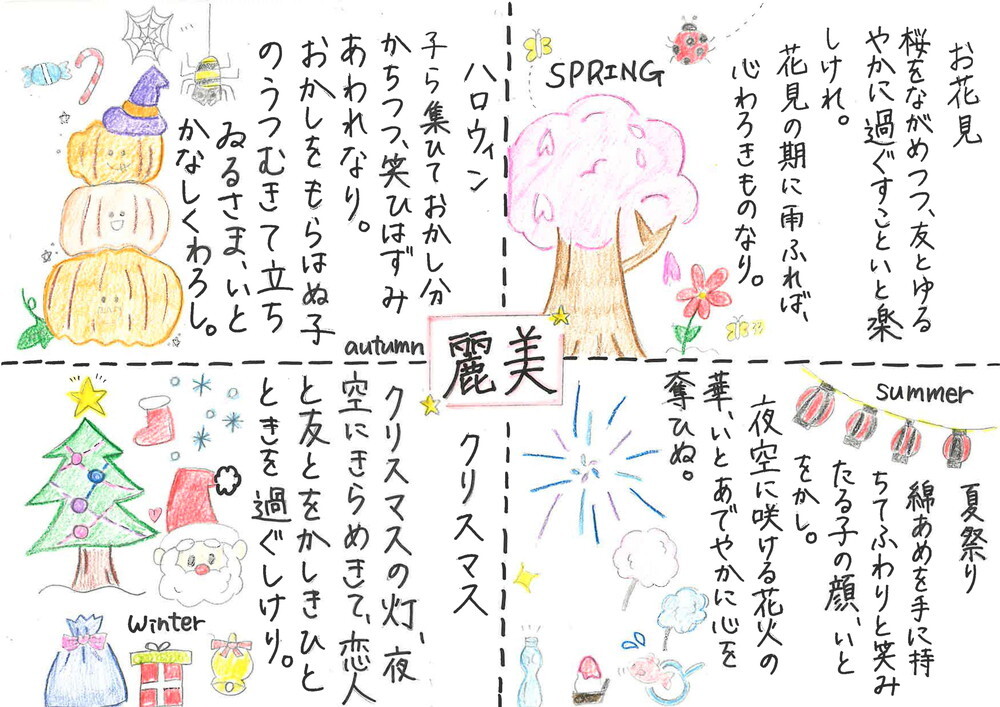 SPRING
お花見
桜をながめつつ、友とゆる
やかに過ぐすこといと楽
しけれ。
花見の期に雨ふれば、
心わろきものなり。
summer
夏祭り
綿あめを手に持
ちてふわりと笑み
たる子の顔、いと
をかし。
夜空に咲ける花火の
華、いとあでやかに心を
奪ひぬ。
autumn
ハロウィン
子ら集ひておかし分
かちつつ、笑ひはずみ
あわれなり。
おかしをもらはぬ子
のうつむきて立ち
ゐるさま、いと
かなしくわろし。
winter
クリスマス
クリスマスの灯、夜
空にきらめきて、恋人
と友とをかしきひと
ときを過ぐしけり。
麗美